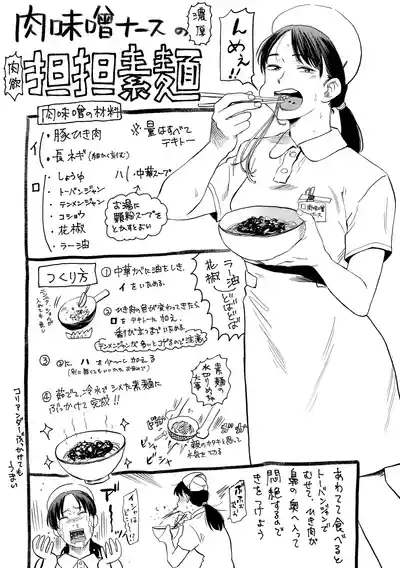 肉味噌ナースの
濃厚
肉欲
担担素麺
んめぇ!!
肉味噌の材料
イ
・豚ひき肉
・長ネギ(細かく刻む)
※量はすべて
テキトー
ロ
・しょうゆ
・トーバンジャン
・テンメンジャン
・コショウ
・花椒
・ラー油
ハ
中華スープ
お湯に
顆粒スープを
とかすとよい
肉味噌
ナース
つくり方
① 中華なべに油をしき、
イをいためる。
② ひき肉の色が変わってきたら
ロをテキトーに加え、
香りが立つまでいためる。
テンメンジャンが多いとコゲるので注意
③ ②にハを少〜し加える
④ 茹でて、冷水でシメた素麺に
ぶっかけて完成!!
ラー油
花椒
どばどば
素麺の
水切りめちゃ
大事
親のカタキと思って
水気を切る
ビシャ
ビシャ
コリアンダーぶっかけても
うまい
あわてて食べると
トーバンジャンで
むせて、ひき肉が
鼻の奥へ入って
悶絶するので
きをつけよう